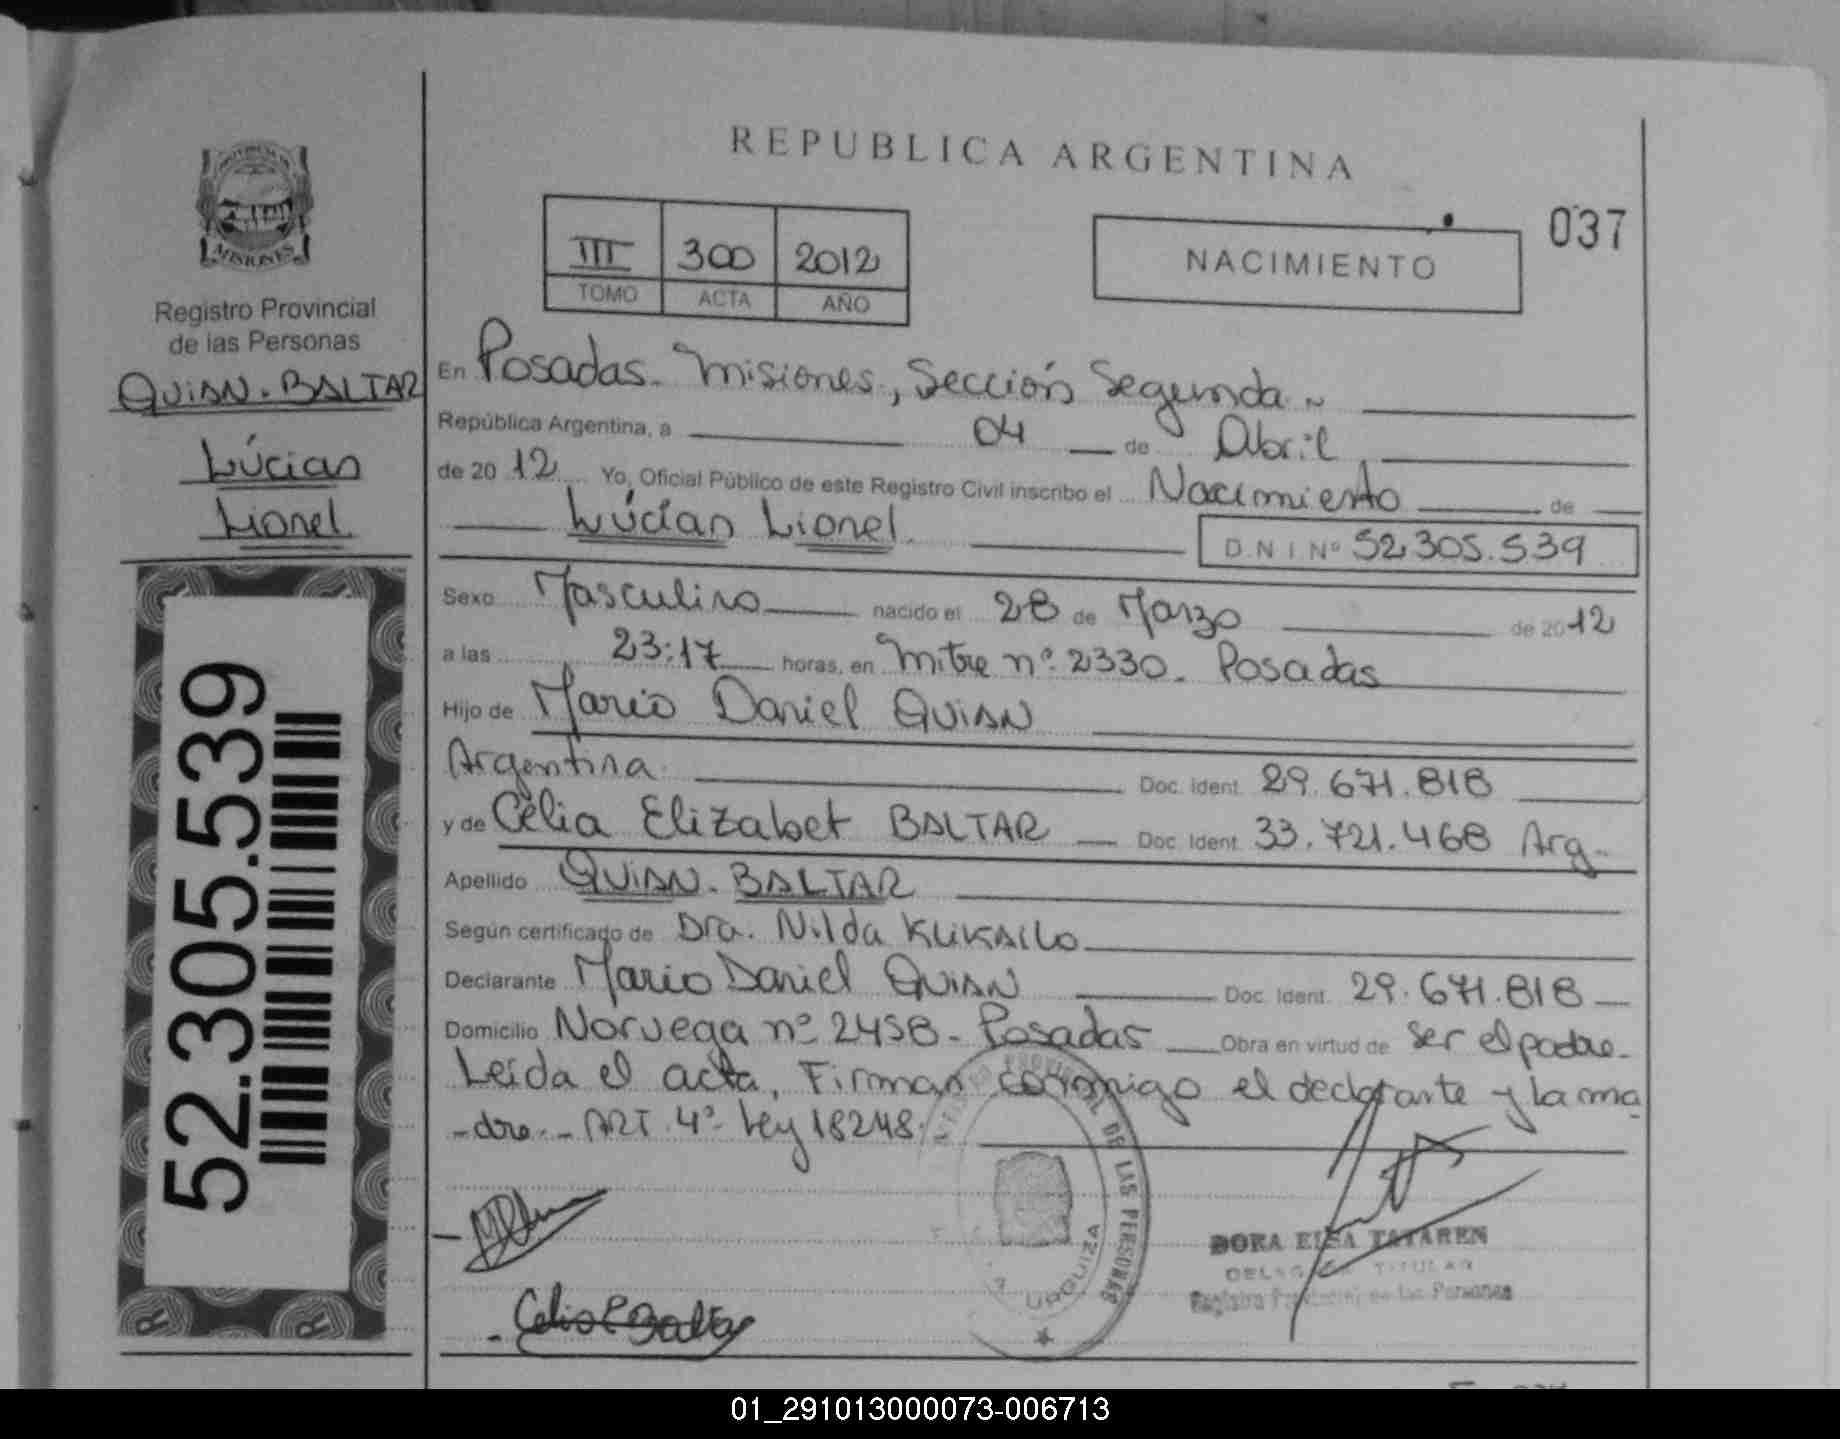 PROVINCIA DE
MISIONES
Registro Provincial
de las Personas
QUIAN. BALTAR
Lúcian
Lionel
52.305.539
REPUBLICA ARGENTINA
III 300 2012
TOMO ACTA AÑO
NACIMIENTO
037
En Posadas. Misiones, Sección Segunda
República Argentina, a 04 de Abril
de 20 12 Yo, Oficial Público de este Registro Civil inscribo el Nacimiento de
Lúcian Lionel.
D.N.I Nº 52.305.539
Sexo Masculino nacido el 28 de Marzo de 20 12
a las 23:17 horas, en Mitre nº 2330. Posadas
Hijo de Mario Daniel QUIAN
Argentina Doc. Ident. 29.671.818
y de Célia Elizabet BALTAR Doc. Ident. 33.721.468 Arg.
Apellido QUIAN. BALTAR
Según certificado de Dra. Nilda
Declarante Mario Daniel QUIAN Doc. Ident. 29.671.818
Domicilio Noruega nº 2458 - Posadas Obra en virtud de ser el padre.
Leída el acta, Firman conmigo el declarante y la ma
-dre.- ART. 4º Ley 18248.
PROVINCIAL DE LAS PERSONAS
URQUIZA
Celia E Baltar
DORA ELSA TATAREN
TITULAR
Registro Provincial de las Personas
01_291013000073-006713